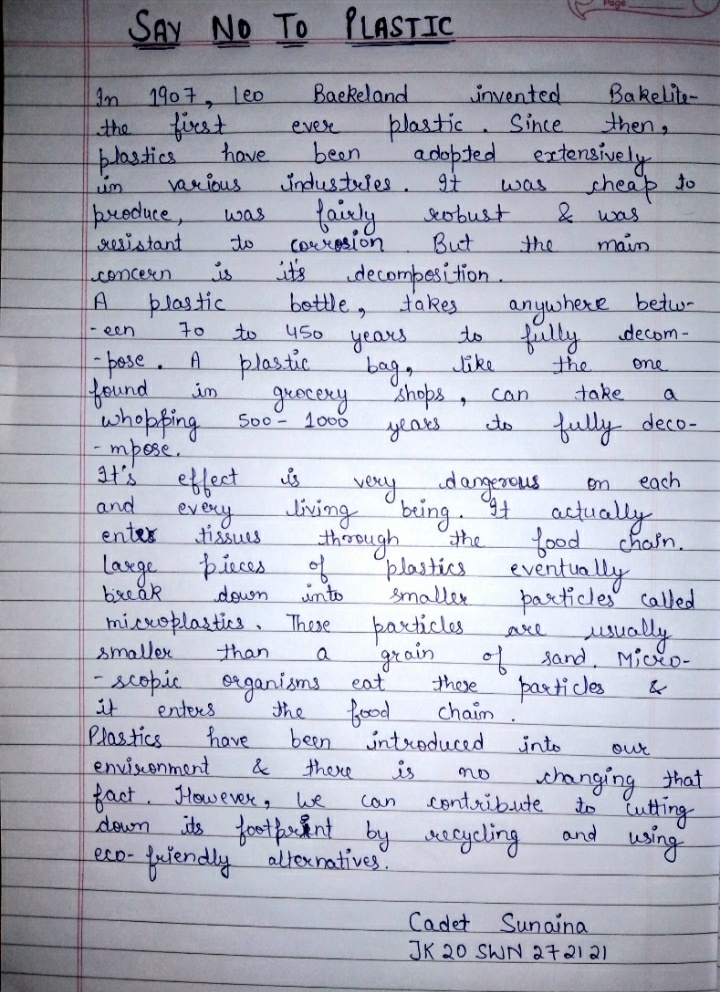 Page
SAY NO TO PLASTIC
In 1907, Leo Baekeland invented Bakelite-
the first ever plastic. Since then,
plastics have been adopted extensively
in various industries. It was cheap to
produce, was fairly robust & was
resistant to corrosion. But the main
concern is it's decomposition.
A plastic bottle, takes anywhere betw-
-een 70 to 450 years to fully decom-
-pose. A plastic bag, like the one
found in grocery shops, can take a
whopping 500-1000 years to fully deco-
-mpose.
It's effect is very dangerous on each
and every living being. It actually
enter tissues through the food chain.
Large pieces of plastics eventually
break down into smaller particles called
microplastics. These particles are usually
smaller than a grain of sand. Micro-
-scopic organisms eat these particles &
it enters the food chain.
Plastics have been introduced into our
environment & there is no changing that
fact. However, we can contribute to cutting
down its footprint by recycling and using
eco-friendly alternatives.
Cadet Sunaina
JK 20 SWN 272121